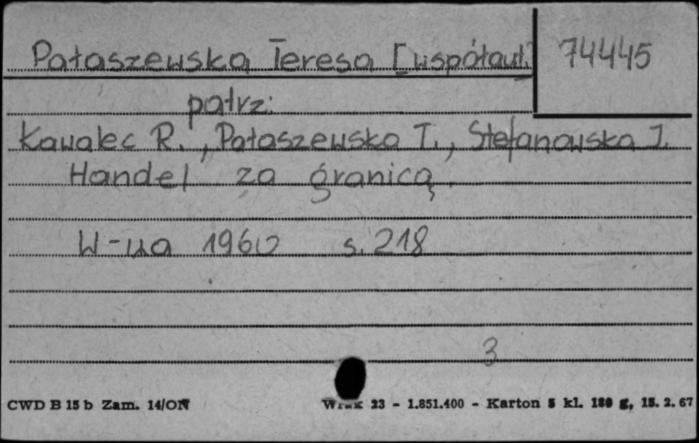 Pałaszewska Teresa [współaut.] 74445
patrz:
Kawalec R., Pałaszewska T., Stefanowska I.
Handel za granicą.
W-wa 1960 s. 218
3
CWD B 15 b Zam. 14/ON 23 - 1.851.400 - Karton 5 kl. 180 g, 15. 2. 67